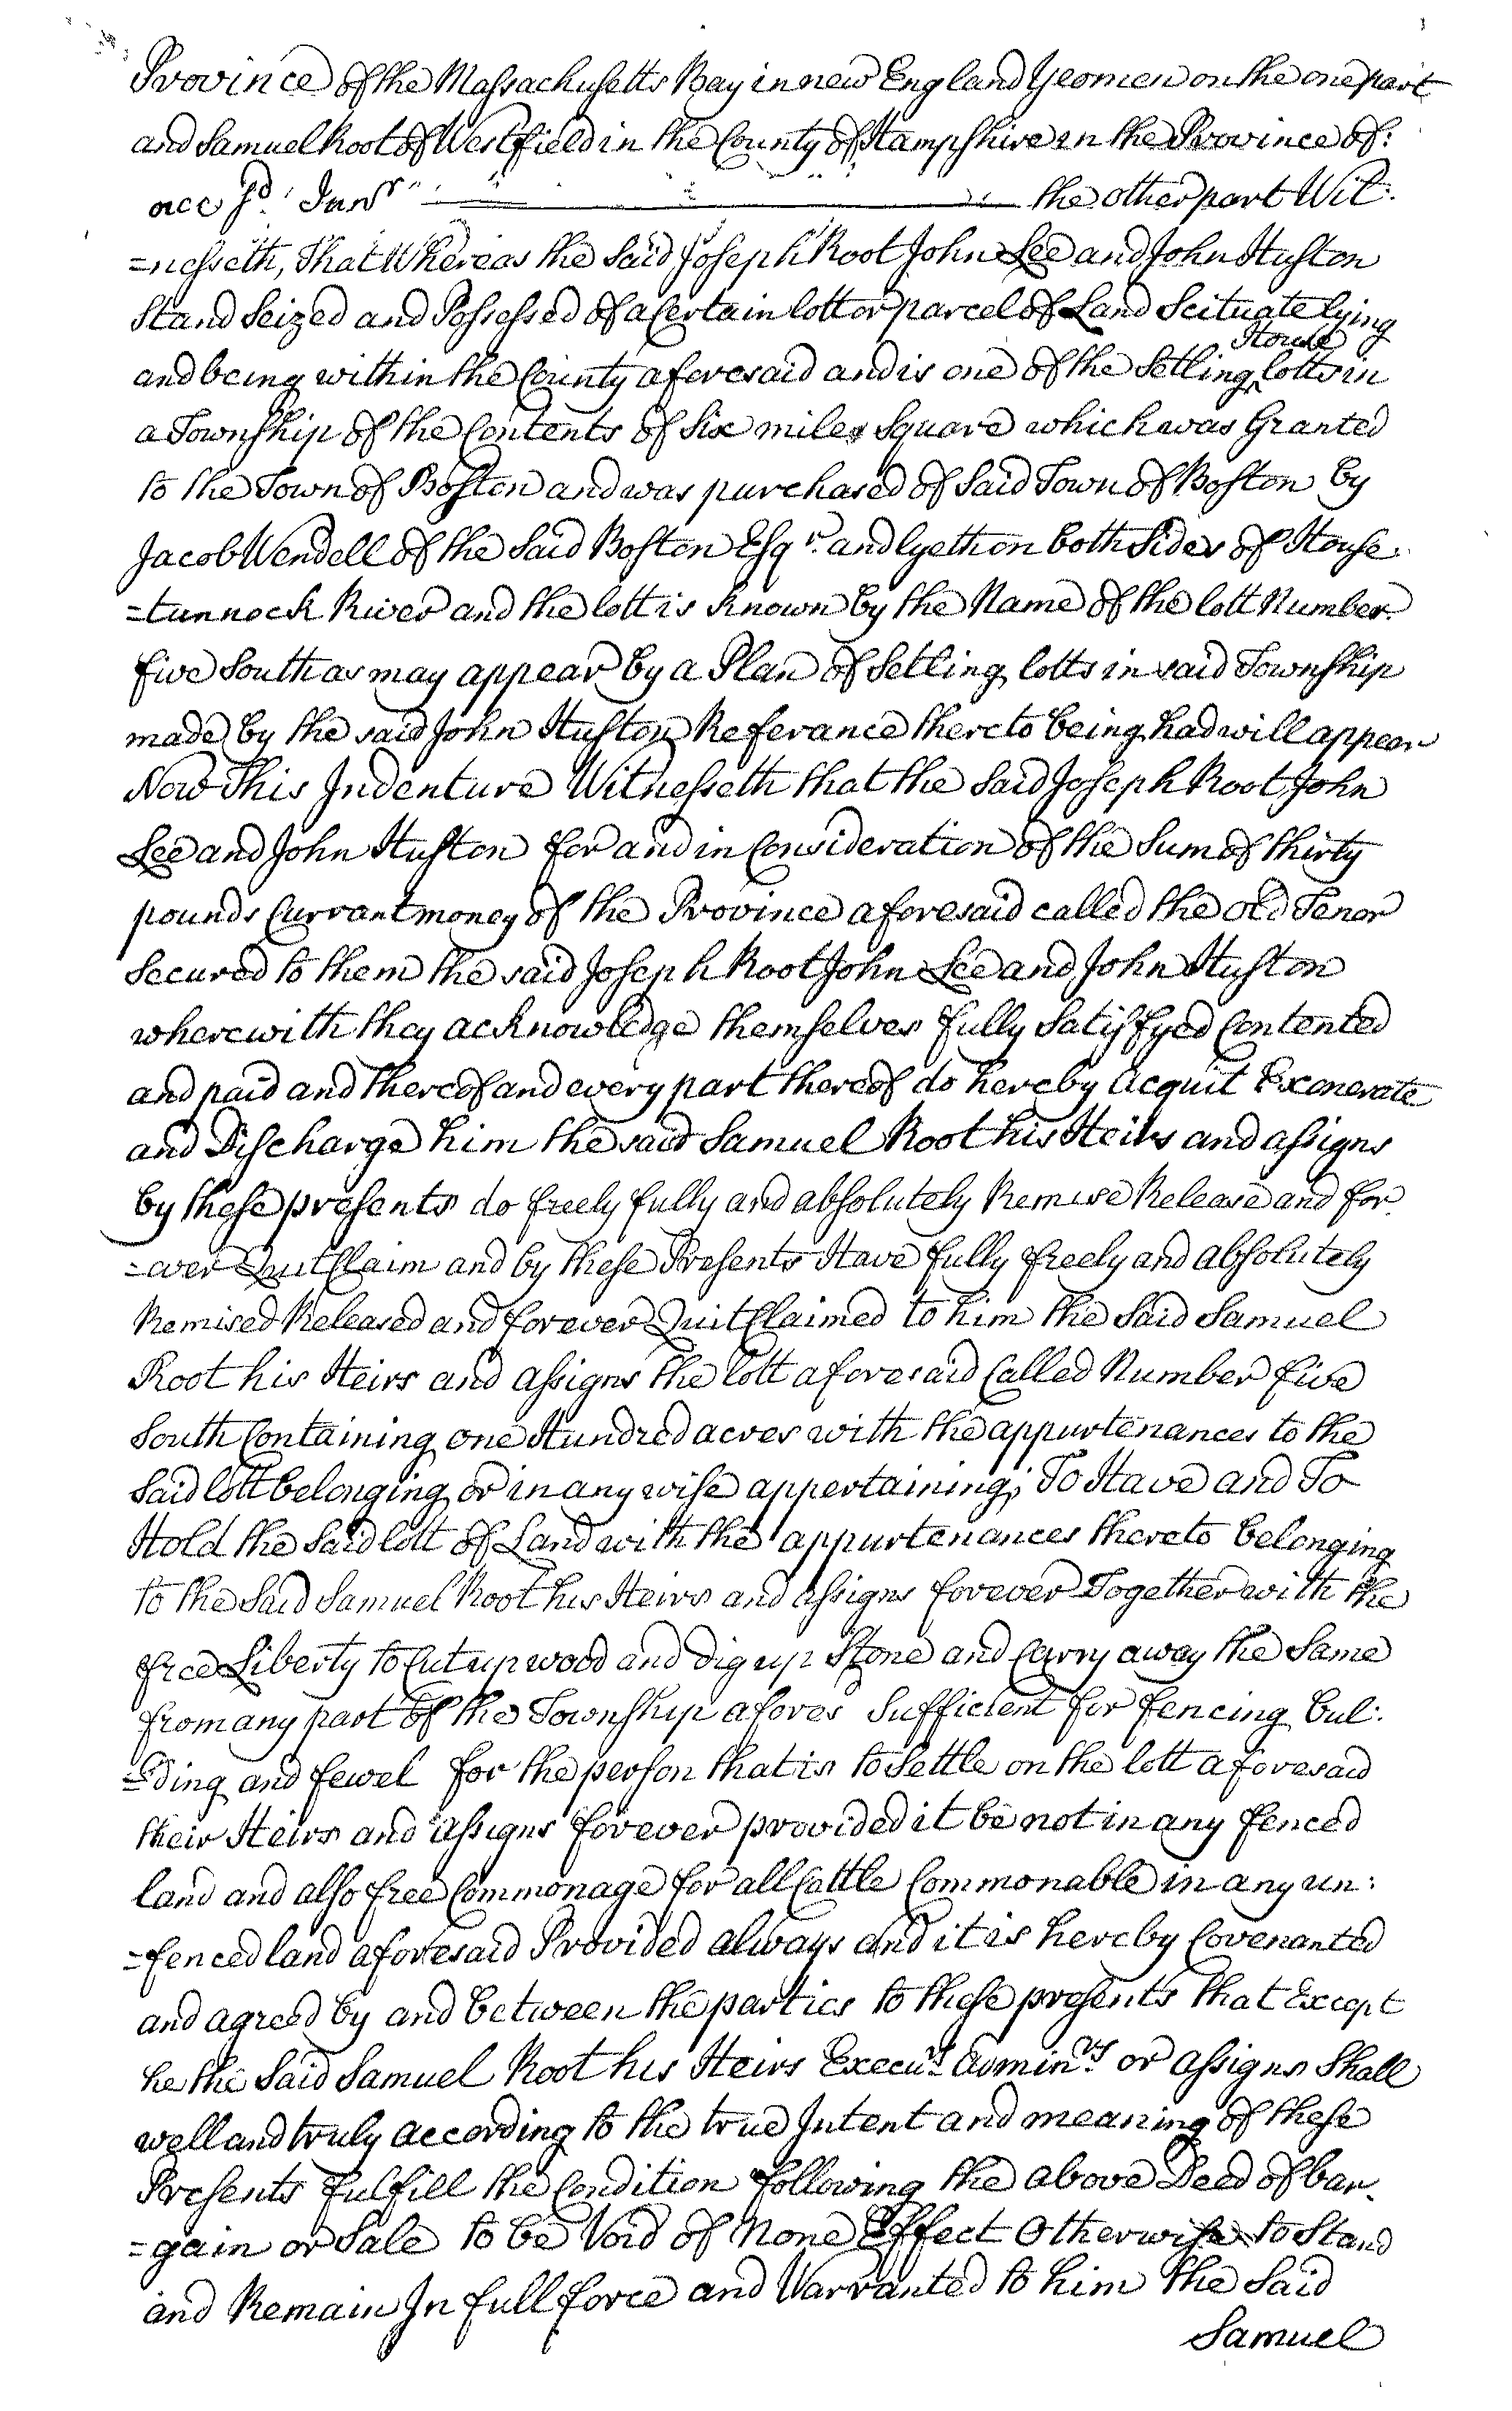 Province of the Massachusetts Bay in new England Yeomen on the one part
and Samuel Root of Westfield in the County of Hampshire in the Province of:
the other part Wit:
=nesseth, That Whereas the Said Joseph Root John Lee and John Huston
Stand Seized and Possessed of a Certain lott or parcel of Land Scituate lying
House
and being within the County aforesaid and is one of the Setling lotts in
a Township of the Contents of Six miles Square which was Granted
to the Town of Boston and was purchased of Said Town of Boston by
Jacob Wendell of the Said Boston Esqr. and lyeth on both Sides of House:
=tunnock River and the lott is known by the Name of the lott Number
five South as may appear by a Plan of Setling lotts in said Township
made by the said John Huston Referance thereto being had will appear
Now This Indenture Witnesseth that the Said Joseph Root John
Lee and John Huston for and in Consideration of the Sum of thirty
pounds Currant money of the Province aforesaid called the old Tenor
Secured to them the said Joseph Root John Lee and John Huston
wherewith they acknowledge themselves fully Satisfyed Contented
and paid and thereof and every part thereof do hereby acquit Exonerate
and Discharge him the said Samuel Root his Heirs and assigns
by these presents do freely fully and absolutely Remise Release and for
=ever Quit Claim and by these Presents Have fully freely and absolutely
Remised Released and forever Quit Claimed to him the Said Samuel
Root his Heirs and assigns the lott aforesaid Called Number five
South Containing one Hundred acres with the appurtenances to the
Said lott belonging or in any wise appertaining; To Have and To
Hold the Said lott of Land with the appurtenances thereto belonging
to the Said Samuel Root his Heirs and assigns forever Together with the
free Liberty to Cut up wood and dig up Stone and Carry away the Same
from any part of the Township afores Sufficient for fencing bul:
=ding and fewel for the person that is to Settle on the lott aforesaid
their Heirs and assigns forever provided it be not in any fenced
land and also free Commonage for all Cattle Commonable in any un:
=fenced land aforesaid Provided always and it is hereby Covenanted
and agreed by and between the parties to these presents that Except
he the Said Samuel Root his Heirs Execurs. Adminrs. or assigns Shall
well and truly according to the true Intent and meaning of these
Presents fulfill the Condition following the above Deed of bar
=gain or Sale to be Void of None Effect Otherwise to Stand
and Remain In full force and Warranted to him the Said
Samuel